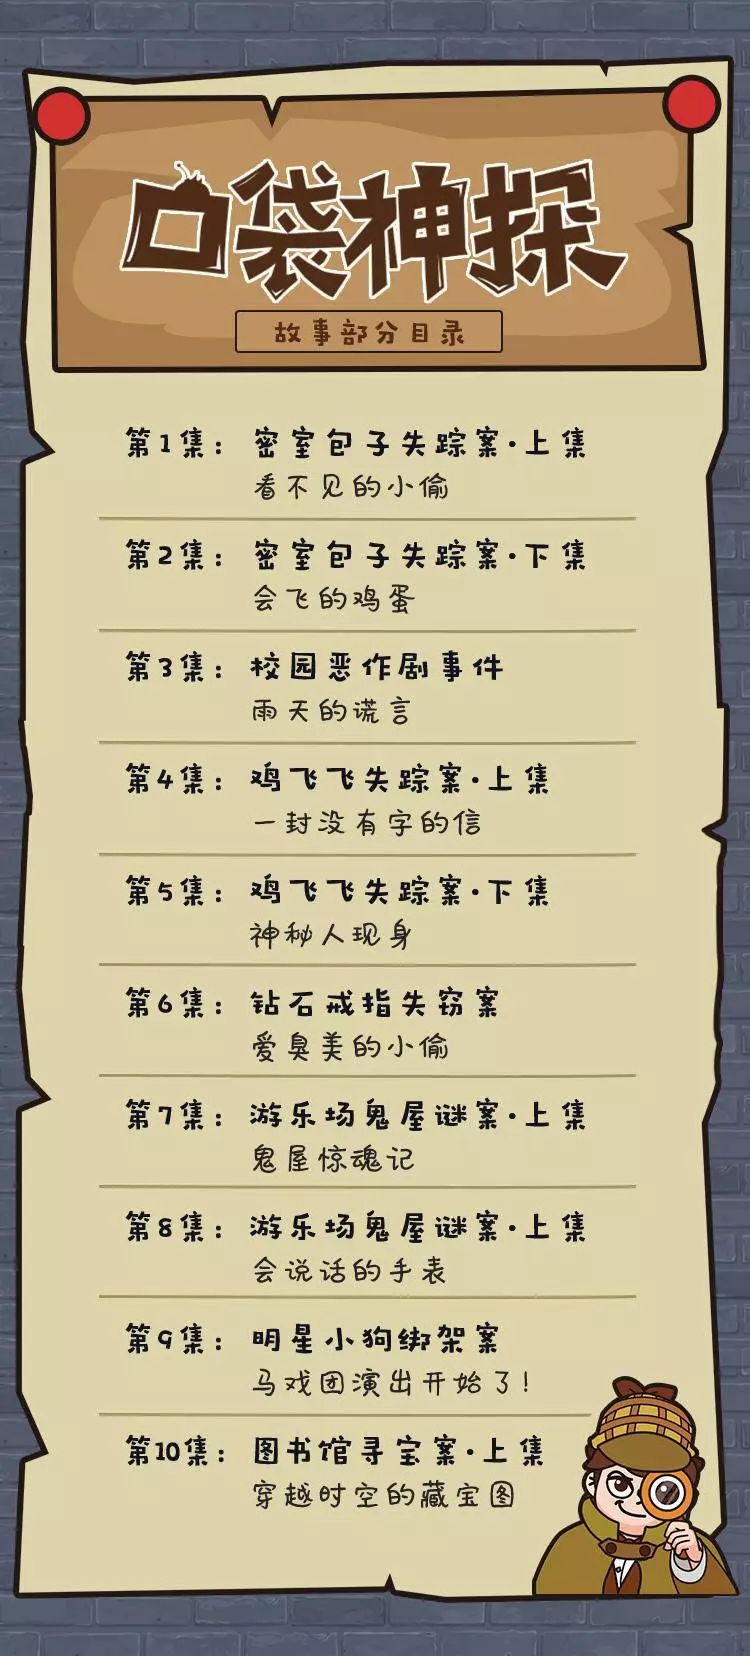 口袋神探
故事部分目录
第1集：密室包子失踪案·上集
看不见的小偷
第2集：密室包子失踪案·下集
会飞的鸡蛋
第3集：校园恶作剧事件
雨天的谎言
第4集：鸡飞飞失踪案·上集
一封没有字的信
第5集：鸡飞飞失踪案·下集
神秘人现身
第6集：钻石戒指失窃案
爱臭美的小偷
第7集：游乐场鬼屋谜案·上集
鬼屋惊魂记
第8集：游乐场鬼屋谜案·上集
会说话的手表
第9集：明星小狗绑架案
马戏团演出开始了!
第10集：图书馆寻宝案·上集
穿越时空的藏宝图